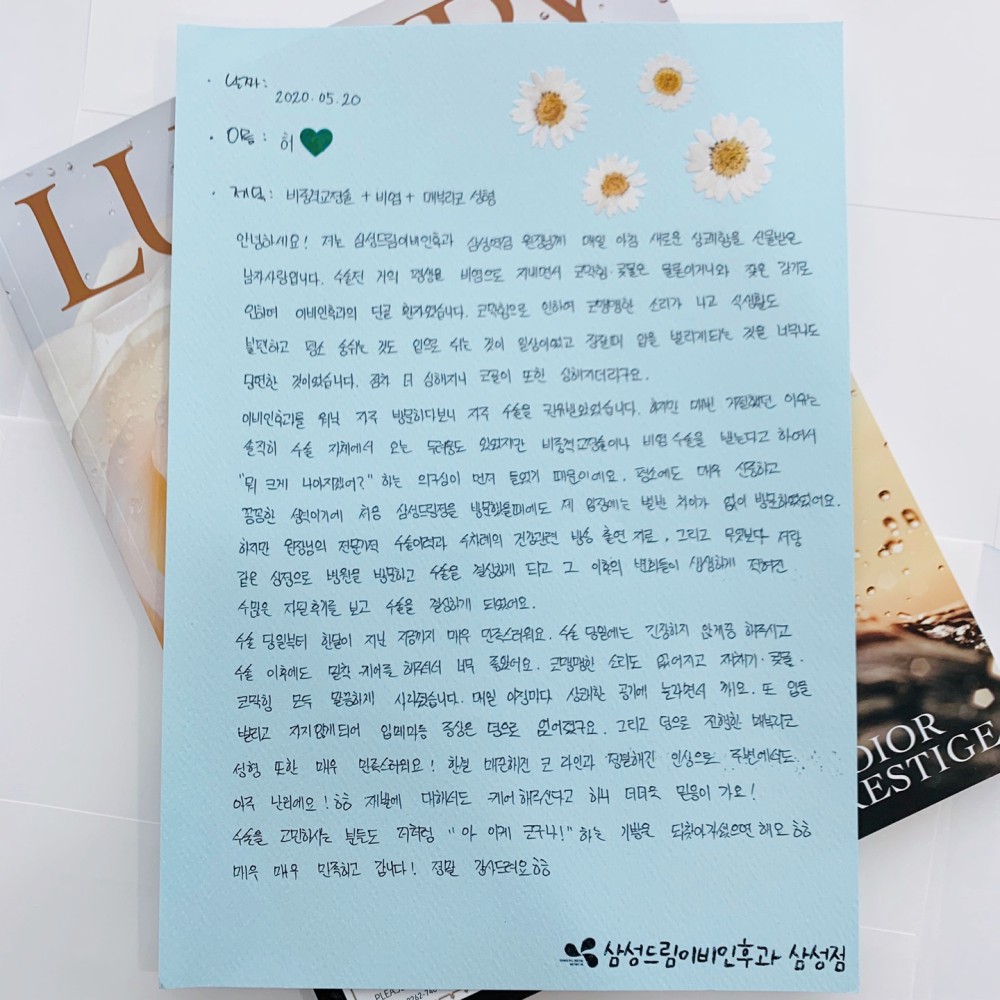 LU
· 날짜 :
2020. 05. 20
· 이름 : 허
· 제목 : 비중격교정술 + 비염 + 매부리코 성형
안녕하세요! 저는 삼성드림이비인후과 삼성역점 원장님께 매일 아침 새로운 상쾌함을 선물받은
남자사람입니다. 수술전 거의 평생을 비염으로 지내면서 코막힘·콧물은 물론이거니와 잦은 감기로
인하여 이비인후과의 단골 환자였습니다. 코막힘으로 인하여 코맹맹한 소리가 나고 식생활도
불편하고 평소 숨쉬는 것도 입으로 쉬는 것이 일상이었고 잠잘때 입을 벌리게되는 것은 너무나도
당연한 것이었습니다. 점차 더 심해지니 코골이 또한 심해지더라구요.
이비인후과를 워낙 자주 방문하다보니 자주 수술을 권유받았었습니다. 하지만 매번 거절했던 이유는
솔직히 수술 자체에서 오는 두려움도 있었지만 비중격교정술이나 비염수술을 받는다고 하여서
"뭐 크게 나아지겠어?" 하는 의구심이 먼저 들었기 때문이에요. 평소에도 매우 신중하고
꼼꼼한 성격이기에 처음 삼성드림점을 방문했을때에도 제 입장에는 별반 차이가 없이 방문하였었어요.
하지만 원장님의 전문가적 수술이력과 수차례의 건강관련 방송 출연 자료, 그리고 무엇보다 저랑
같은 심정으로 병원을 방문하고 수술을 결심하게 되고 그 이후의 변화들이 생생하게 적혀진
수많은 자필후기를 보고 수술을 결심하게 되었어요.
수술 당일부터 한달이 지난 지금까지 매우 만족스러워요. 수술 당일에는 긴장하지 않게끔 해주시고
수술 이후에도 밀착 케어를 해주셔서 너무 좋았어요. 코맹맹한 소리도 없어지고 재채기·콧물·
코막힘 모두 말끔하게 사라졌습니다. 매일 아침마다 상쾌한 공기에 놀라면서 깨요. 또 입을
벌리고 자지않게되어 입메마름 증상은 덤으로 없어졌구요. 그리고 덤으로 진행한 매부리코
성형 또한 매우 만족스러워요! 한결 매끈해진 코 라인과 정돈해진 인상으로 주변에서도
아주 난리에요! ㅎㅎ 재발에 대해서도 케어해주신다고 하니 더더욱 믿음이 가요!
수술을 고민하시는 분들도 저처럼 "아 이게 코구나!" 하는 기쁨을 되찾아가셨으면 해요 ㅎㅎ
매우 매우 만족하고 갑니다! 정말 감사드려요ㅎㅎ
삼성드림이비인후과 삼성점
DIOR
PRESTIGE